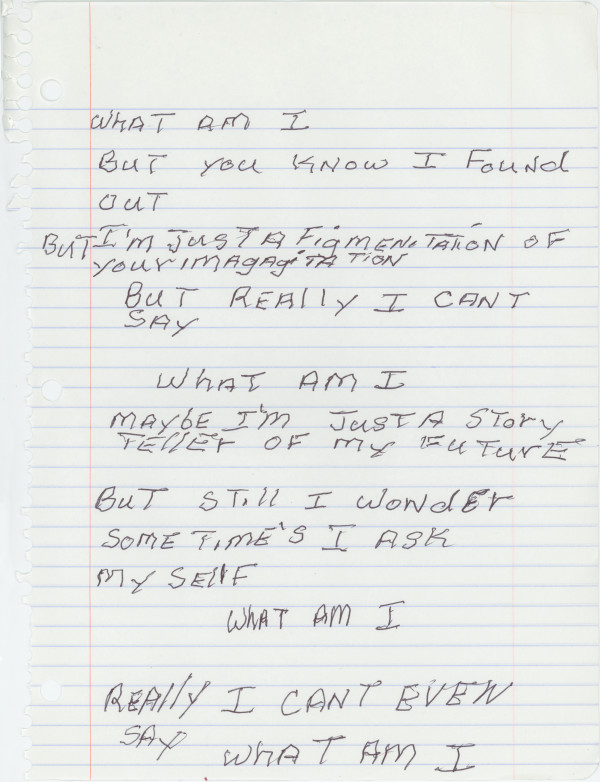 WHAT AM I
BUT YOU KNOW I FOUND
OUT
BUT I'M JUST A FIGMENTATION OF
YOUR IMAGAGITATION
BUT REALLY I CANT
SAY
WHAT AM I
MAYBE I'M JUST A STORY
TELLER OF MY FUTURE
BUT STILL I WONDER
SOME TIME'S I ASK
MY SELF
WHAT AM I
REALLY I CANT EVEN
SAY
WHAT AM I